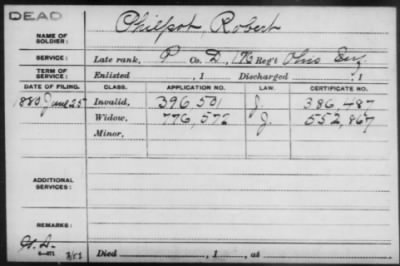 DEAD
NAME OF SOLDIER: Philpot, Robert
SERVICE: Late rank, P Co. D, Reg't Ohio
TERM OF SERVICE: Enlisted , 1 Discharged , 1
DATE OF FILING. CLASS. APPLICATION NO. LAW. CERTIFICATE NO.
June 25 Invalid, 396,501 J. 386,487
Widow, 776,572 J. 552,867
Minor,
ADDITIONAL SERVICES:
REMARKS:
Died , 1 , at